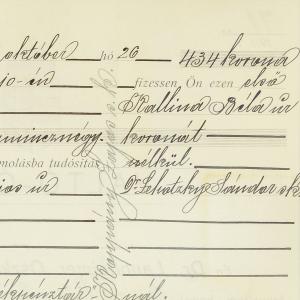 október hó 26 434 korona
10-én fizessen Ön ezen első
Kallina Béla úr
harmincznégy koronát
molásba tudósítás nélkül.
ios úr Dr Lehotzky Sándor s.k.
nál.